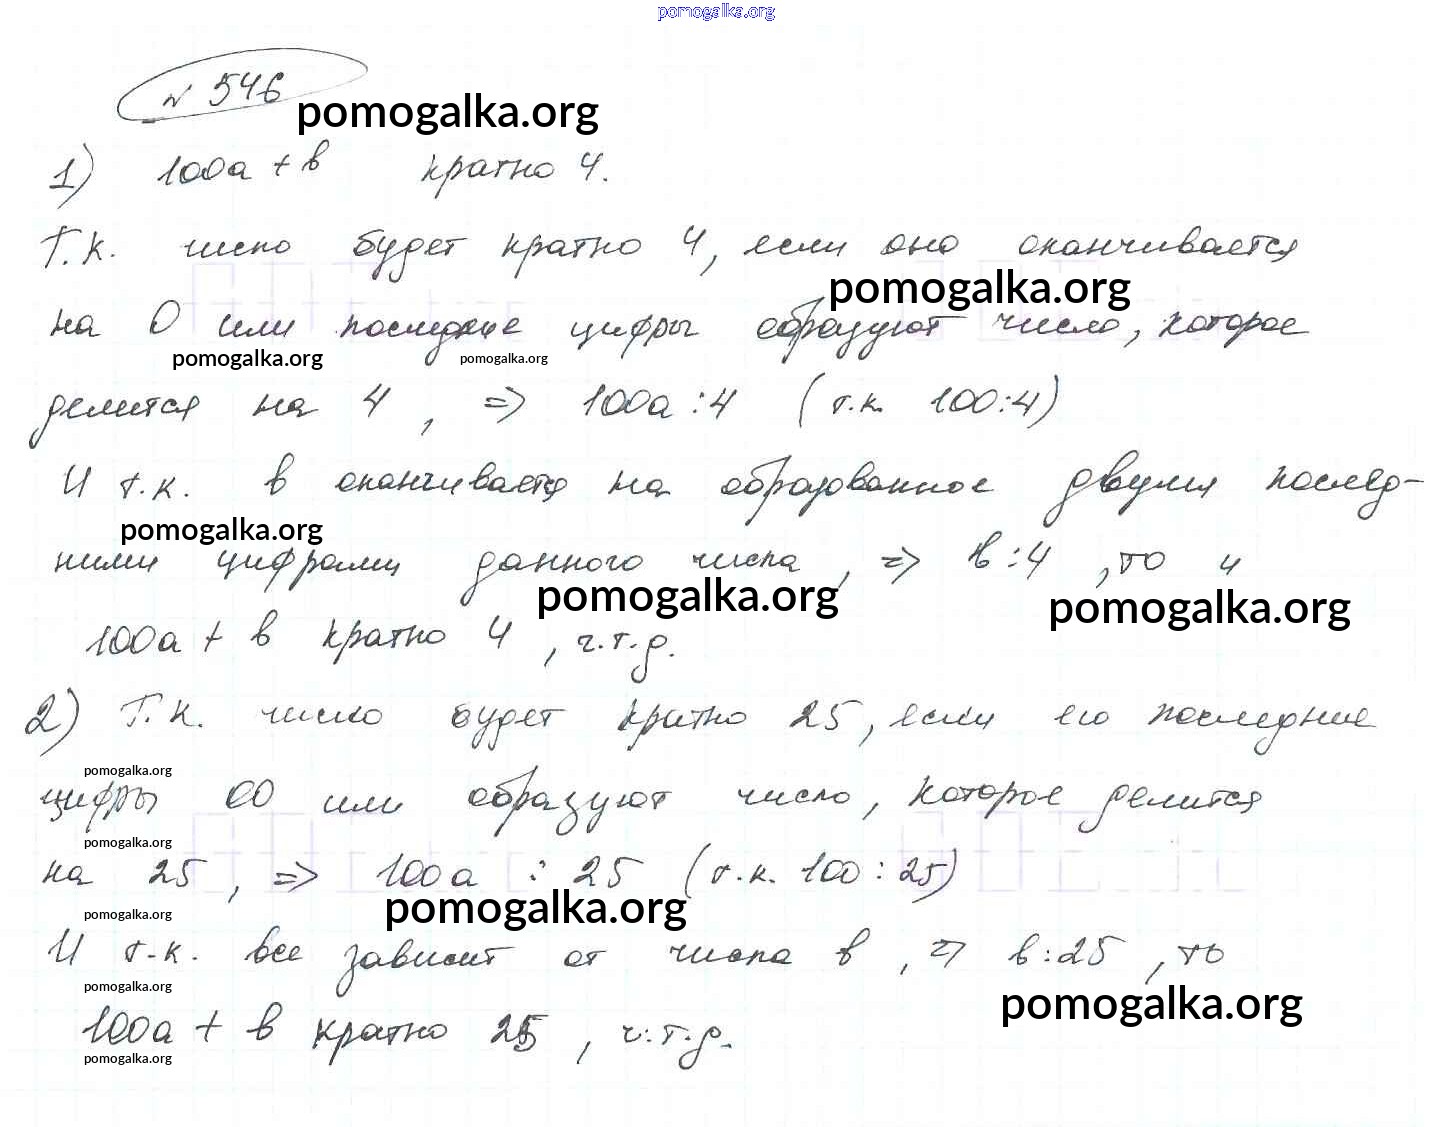 pomogalka.org
№ 546
pomogalka.org
1) 100а + в кратно 4.
Т.к. число будет кратно 4, если оно оканчивается
pomogalka.org
на 0 или последние цифры образуют число, которое
pomogalka.org pomogalka.org
делится на 4, => 100а : 4 (т.к. 100:4)
И т.к. в оканчивается на образованное двумя послед-
pomogalka.org
ними цифрами данного числа, => в : 4, то и
pomogalka.org pomogalka.org
100а + в кратно 4, ч.т.д.
2) Т.к. число будет кратно 25, если его последние
pomogalka.org
цифры 00 или образуют число, которое делится
pomogalka.org
на 25, => 100а : 25 (т.к. 100 : 25)
pomogalka.org
pomogalka.org
И т.к. все зависит от числа в, => в : 25, то
pomogalka.org
pomogalka.org
100а + в кратно 25, ч.т.д.
pomogalka.org